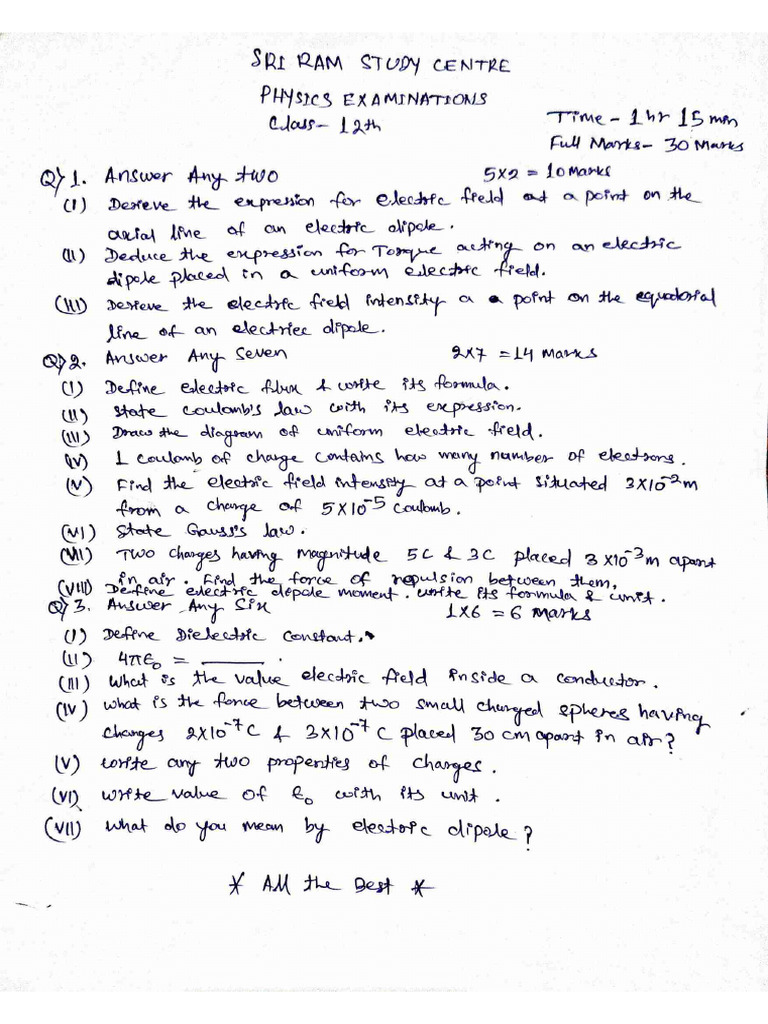 SRI RAM STUDY CENTRE
PHYSICS EXAMINATIONS
Class- 12th
Time- 1 hr 15 min
Full Marks- 30 Marks
Q) 1. Answer Any two 5x2 = 10 Marks
(I) Derieve the expression for electric field at a point on the
axial line of an electric dipole.
(II) Deduce the expression for Torque acting on an electric
dipole placed in a uniform electric field.
(III) Derieve the electric field intensity a a point on the equatorial
line of an electriec dipole.
Q) 2. Answer Any Seven 2x7 = 14 Marks
(I) Define electric flux & write its formula.
(II) State Coulomb's law with its expression.
(III) Draw the diagram of uniform electric field.
(IV) 1 coulomb of charge contains how many number of electrons.
(V) Find the electric field intensity at a point situated 3x10⁻²m
from a charge of 5x10⁻⁵ Coulomb.
(VI) State Gauss's law.
(VII) Two charges having magnitude 5C & 3C placed 3x10⁻³m apart
in air. Find the force of repulsion between them.
(VIII) Define electric dipole moment. write its formula & unit.
Q) 3. Answer Any Six 1x6 = 6 Marks
(I) Define Dielectric Constant.
(II) 4πε₀ = ______ .
(III) What is the value electric field inside a conductor.
(IV) What is the force between two small charged spheres having
charges 2x10⁻⁷C & 3x10⁻⁷C placed 30 cm apart in air?
(V) write any two properties of charges.
(VI) write value of ε₀ with its unit.
(VII) What do you mean by electric dipole?
* All the Best *